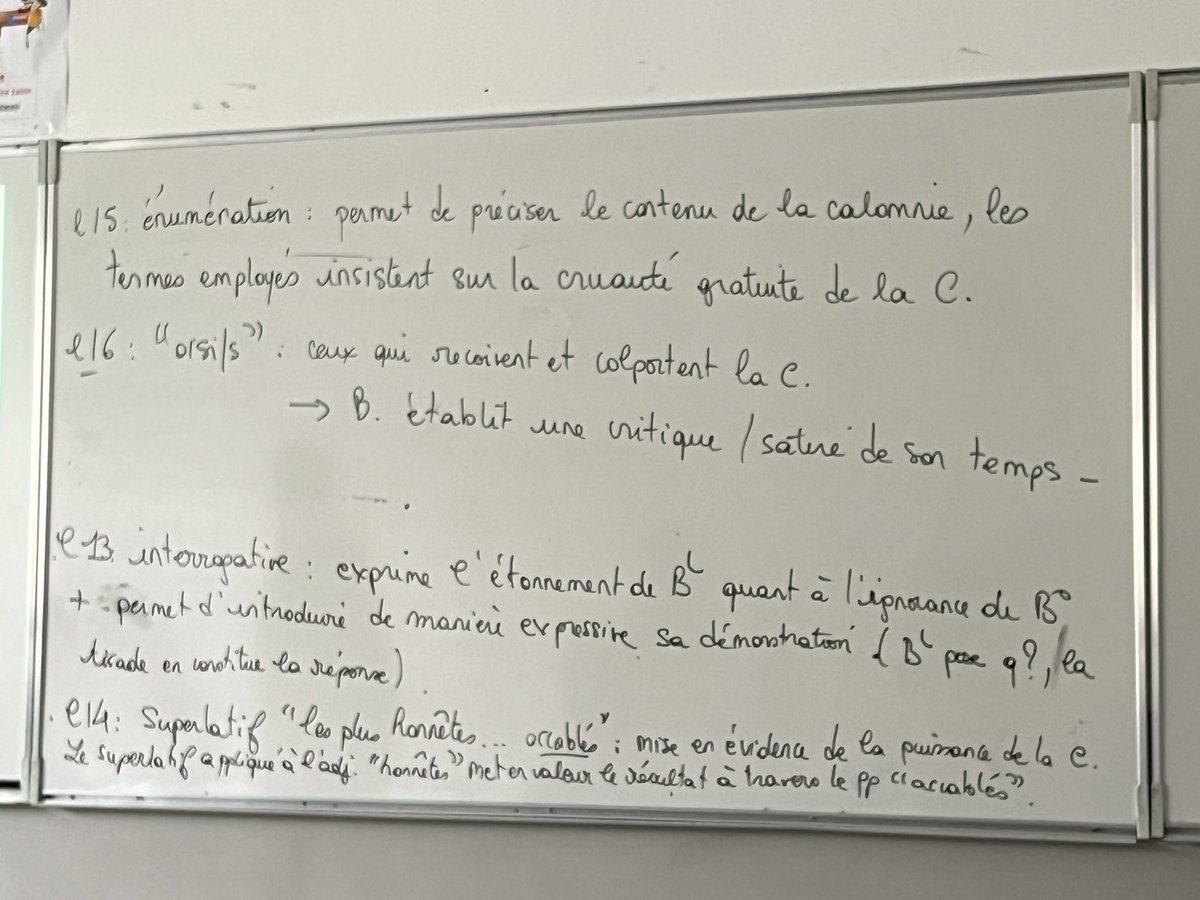 l15: énumération : permet de préciser le contenu de la calomnie, les
termes employés insistent sur la cruauté gratuite de la C.
l16 : "oisifs" : ceux qui reçoivent et colportent la C.
→ B. établit une critique / satire de son temps -
l13. interrogative : exprime l'étonnement de BL quant à l'ignorance de B°
+ permet d'introduire de manière expressive sa démonstration (BL pose q?, la
tirade en constitue la réponse)
. l14: Superlatif "les plus honnêtes... accablés" : mise en évidence de la puissance de la C.
Le superlatif appliqué à l'adj. "honnêtes" met en valeur le résultat à travers le pp "accablés".